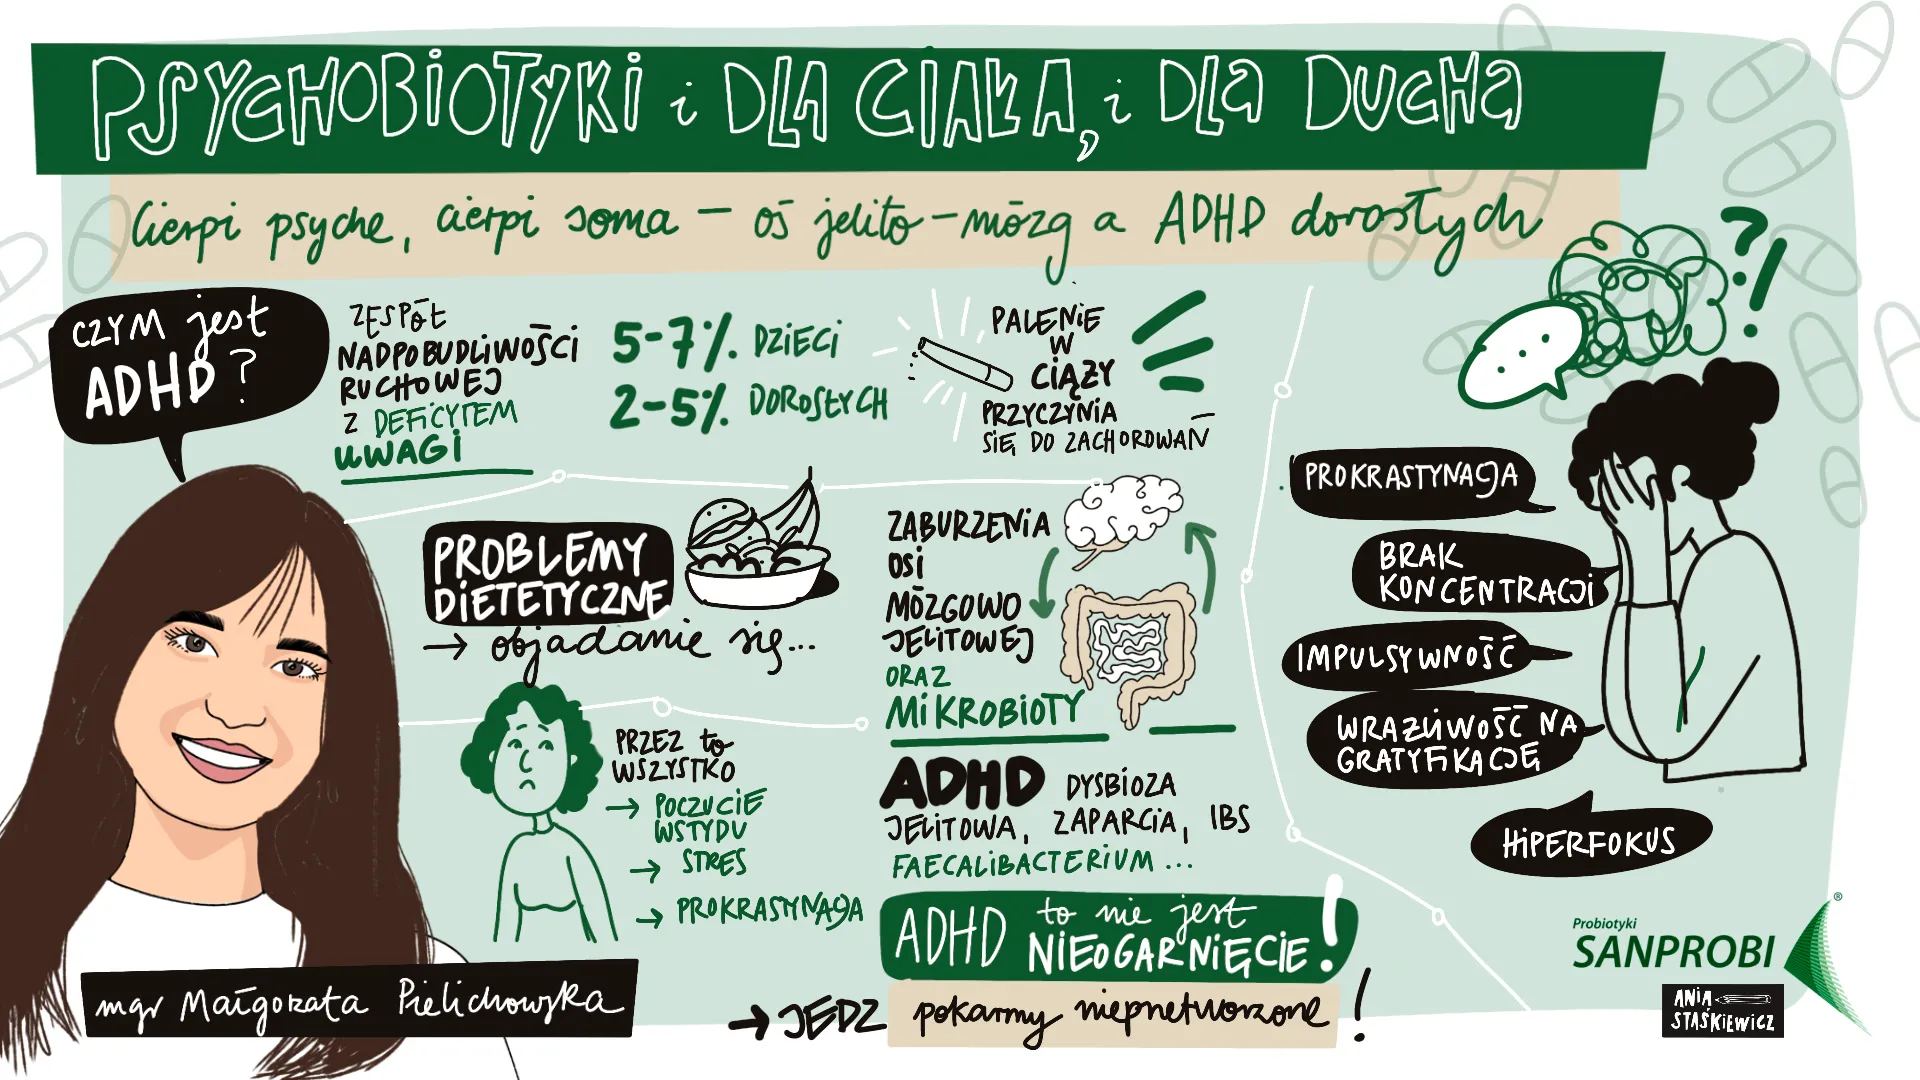 PSYCHOBIOTYKI i DLA CIAŁA, i DLA DUCHA
Cierpi psyche, cierpi soma – oś jelito-mózg a ADHD dorosłych
CZYM jest
ADHD?
ZESPÓŁ
NADPOBUDLIWOŚCI
RUCHOWEJ
Z DEFICYTEM
UWAGI
5-7% DZIECI
2-5% DOROSŁYCH
PALENIE
W
CIĄŻY
PRZYCZYNIA
SIĘ DO ZACHOROWAŃ
PROBLEMY
DIETETYCZNE
→ objadanie się...
PRZEZ to
WSZYSTKO
→ POCZUCIE
WSTYDU
→ STRES
→ PROKRASTYNACJA
ZABURZENIA
OSI
MÓZGOWO
JELITOWEJ
ORAZ
MIKROBIOTY
ADHD DYSBIOZA
JELITOWA, ZAPARCIA, IBS
FAECALIBACTERIUM...
ADHD to nie jest
NIEOGARNIĘCIE!
→ JEDZ pokarmy nieprzetworzone!
?!
PROKRASTYNACJA
BRAK
KONCENTRACJI
IMPULSYWNOŚĆ
WRAŻLIWOŚĆ NA
GRATYFIKACJĘ
HIPERFOKUS
mgr Małgorzata Pielichowska
Probiotyki
SANPROBI
®
ANIA
STAŚKIEWICZ